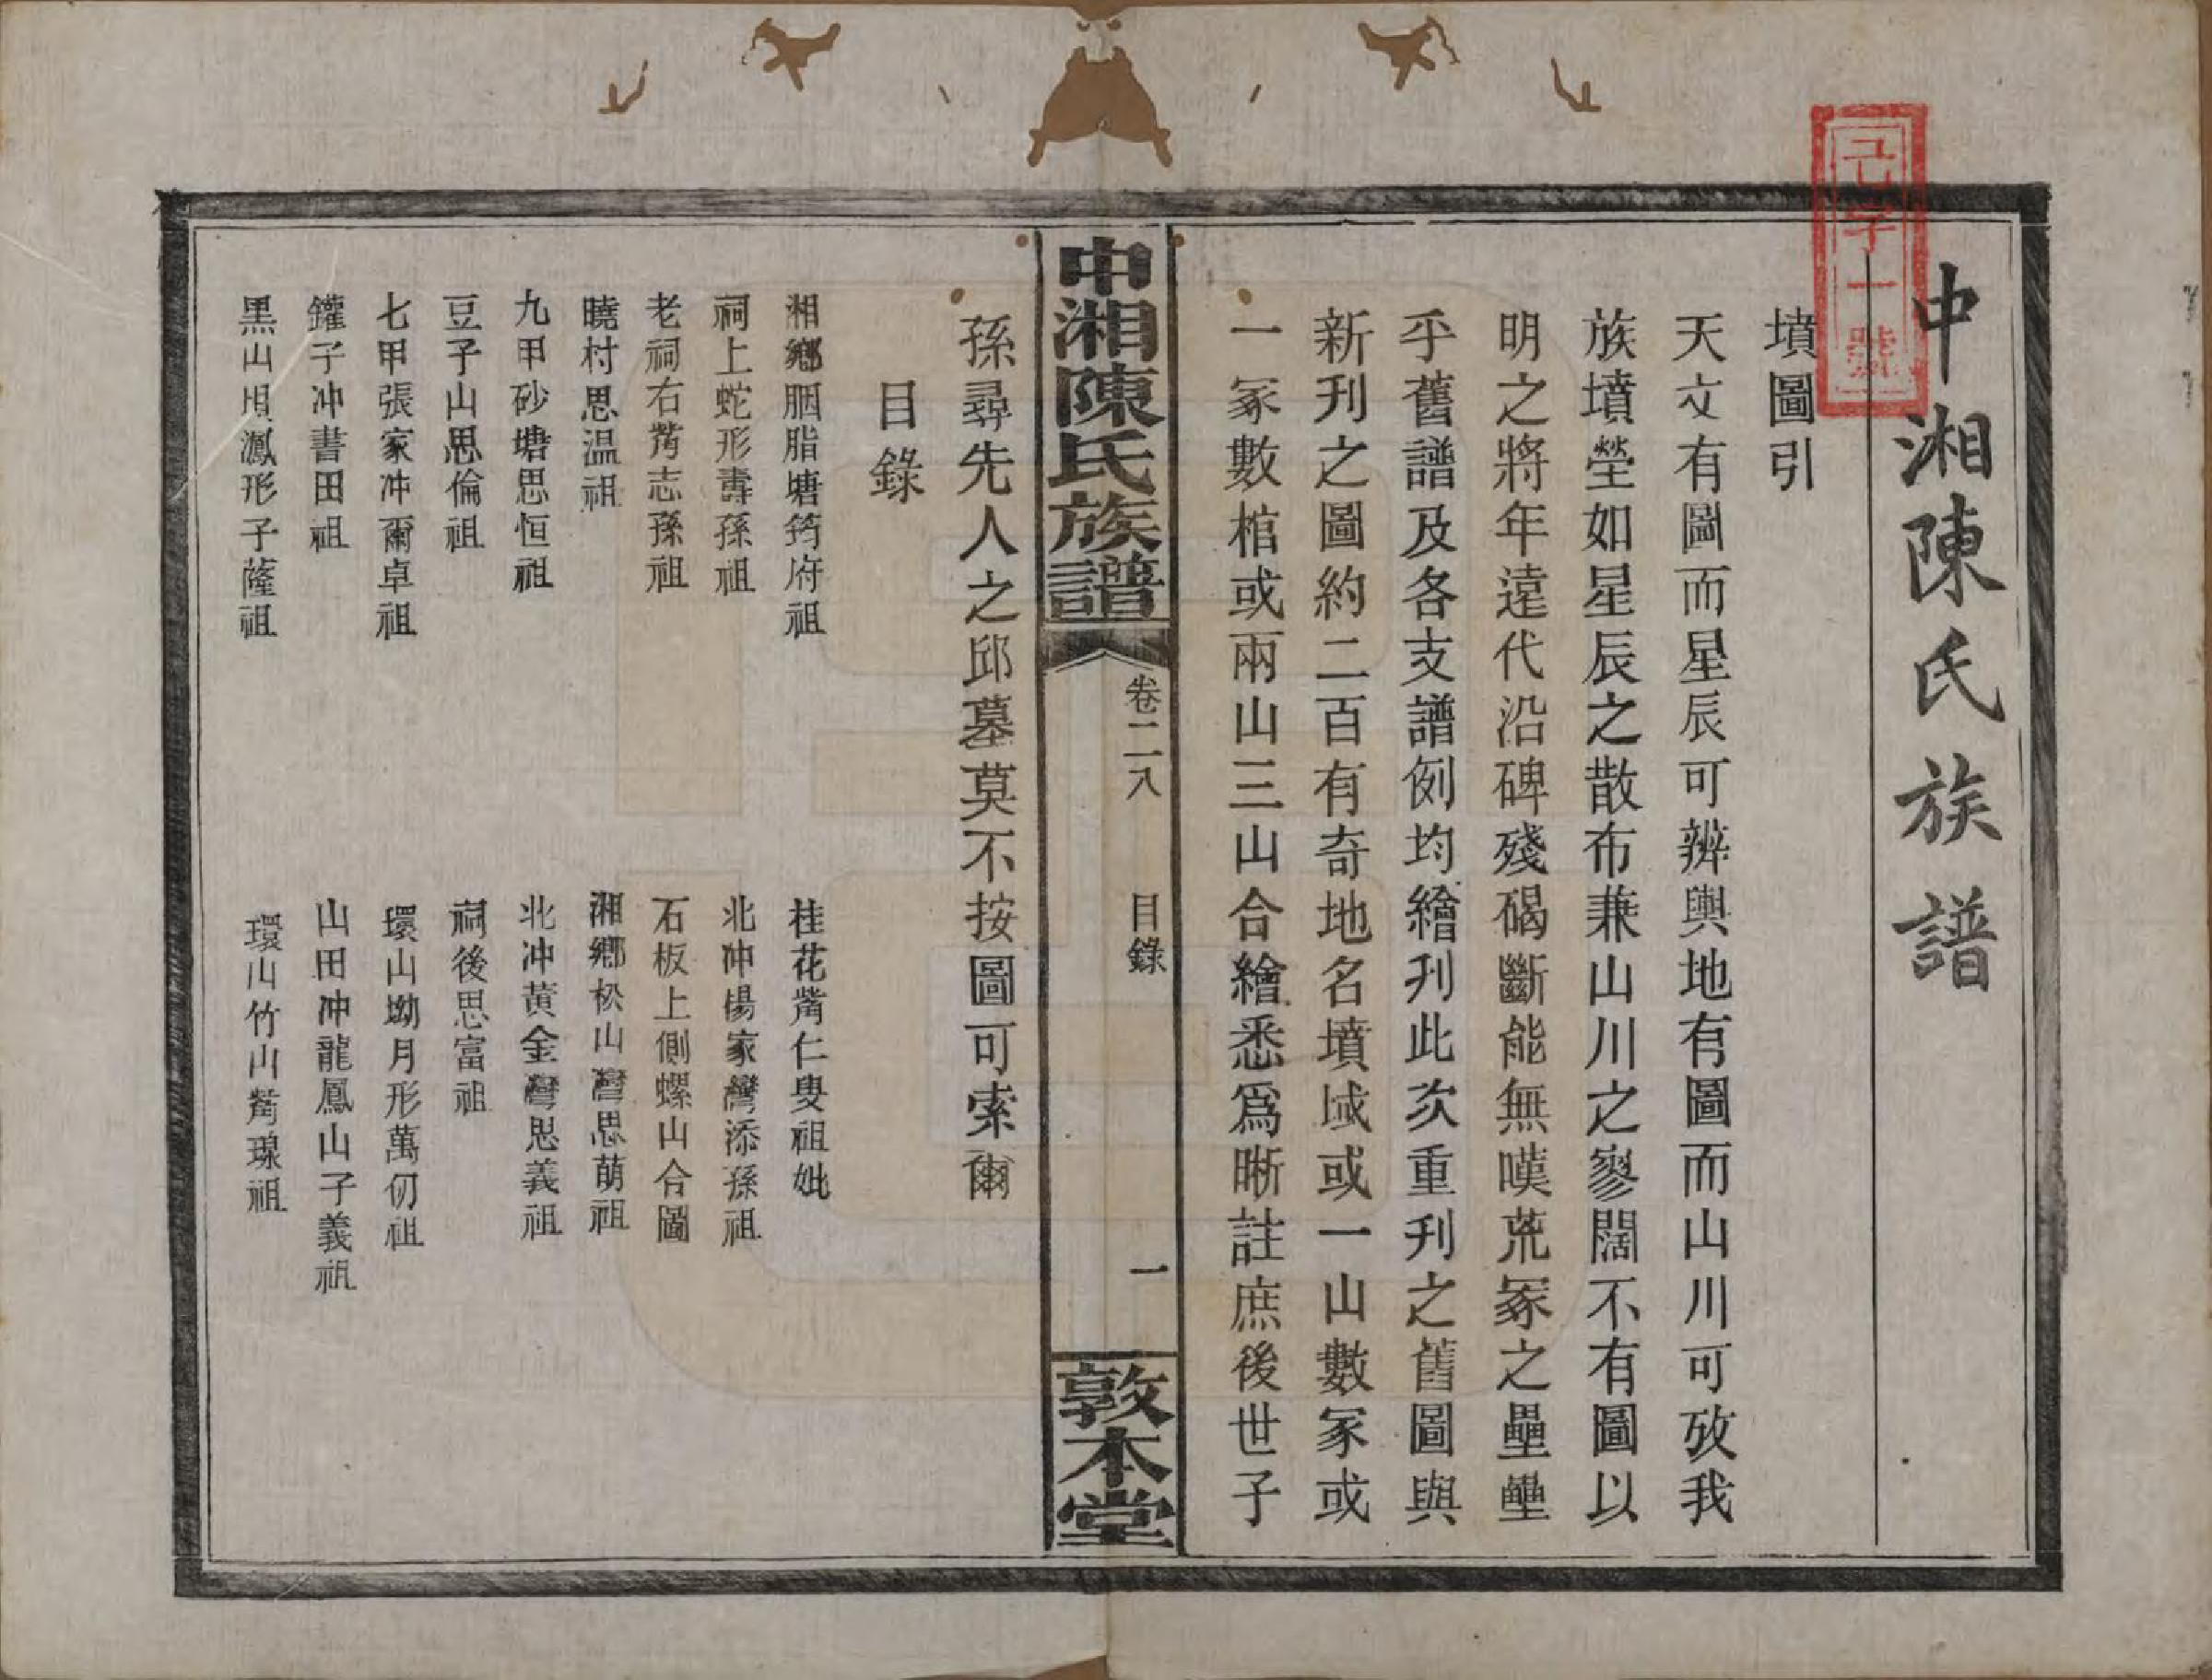 己字一號
中湘陳氏族譜
墳圖引
天文有圖而星辰可辨輿地有圖而山川可攷我
族墳塋如星辰之散布兼山川之寥闊不有圖以
明之將年遠代沿碑殘碣斷能無嘆荒冢之壘壘
乎舊譜及各支譜例均繪刋此次重刋之舊圖與
新刋之圖約二百有奇地名墳域或一山數冢或
一冢數棺或兩山三山合繪悉爲晰註庶後世子
中湘陳氏族譜
卷二八
目錄
一
敦本堂
孫尋先人之邱墓莫不按圖可索爾
目錄
湘鄉胭脂塘筠府祖
桂花觜仁叟祖妣
祠上蛇形壽孫祖
北冲楊家灣添孫祖
老祠右觜志孫祖
石板上側螺山合圖
曉村思温祖
湘鄉松山灣思萠祖
九甲砂塘思恒祖
北冲黃金灣思義祖
豆子山思倫祖
祠後思富祖
七甲張家冲爾卓祖
環山坳月形萬仞祖
鑵子冲書田祖
山田冲龍鳳山子義祖
黑山垻鳳形子薩祖
環山竹山觜璟祖